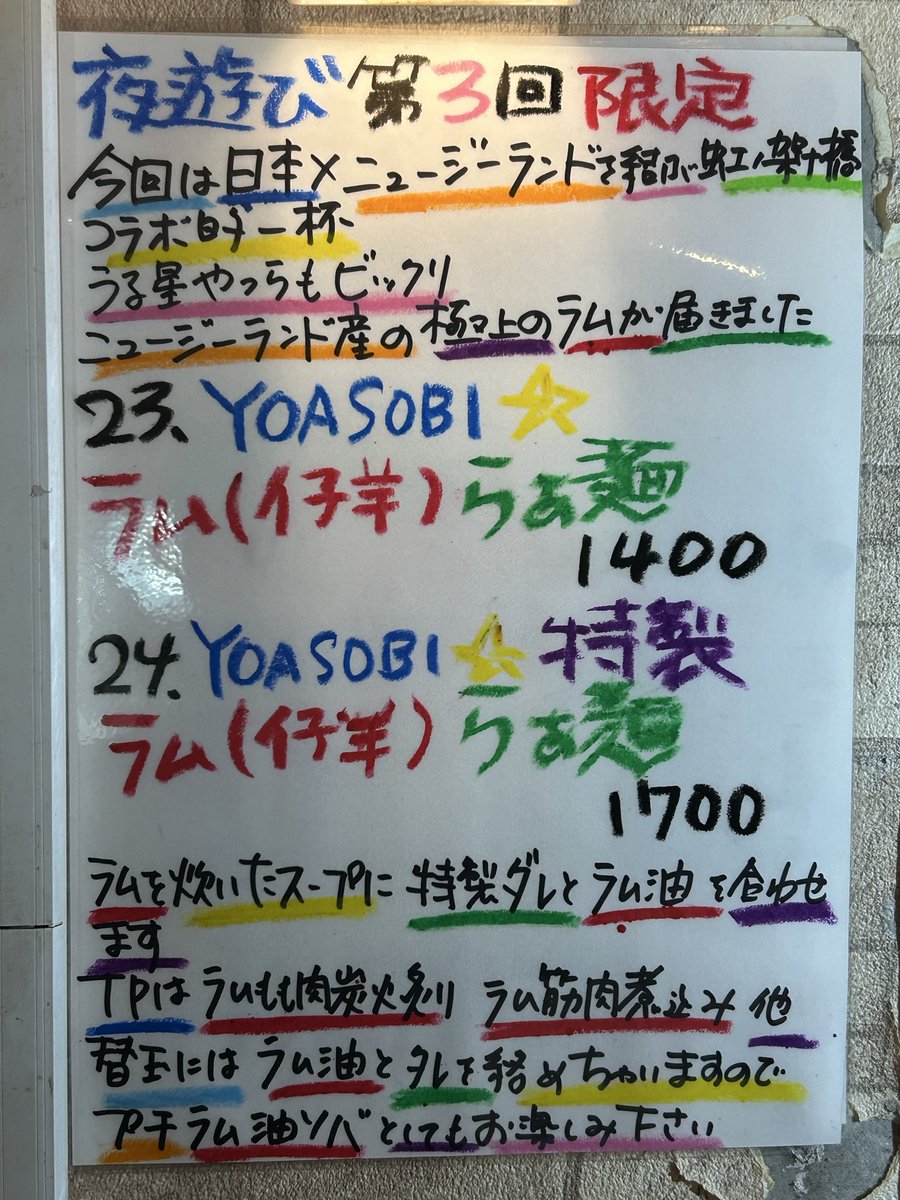 夜遊び 第3回 限定
今回は日本×ニュージーランドを結ぶ虹ノ架ヶ橋
コラボ的一杯
うる星やつらもビックリ
ニュージーランド産の極上のラムが届きました
23、YOASOBI☆
ラム(仔羊)らぁ麺
1400
24、YOASOBI☆特製
ラム(仔羊)らぁ麺
1700
ラムを炊いたスープに 特製ダレとラム油を合わせ
ます
TPはラムもも肉炭火炙り ラム筋肉煮込み 他
替玉には ラム油とタレを絡めちゃいますので
プチラム油ソバとしてもお楽しみ下さい